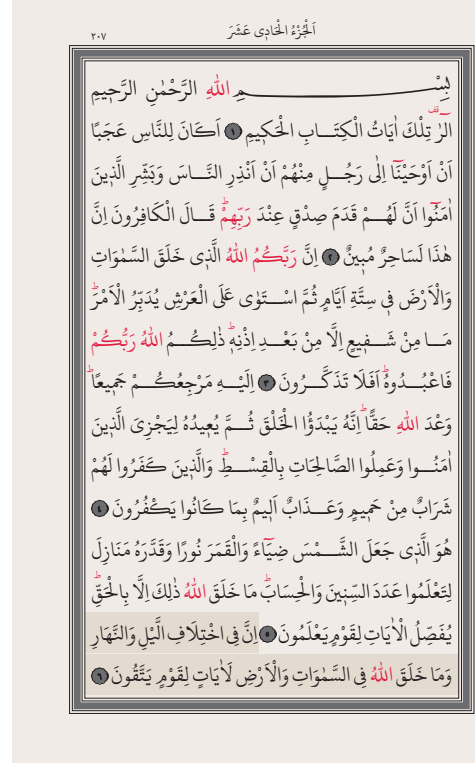 اَلْجُزْءُ الْحَادِى عَشَرَ
٢٠٧
بِسْمِ اللهِ الرَّحْمٰنِ الرَّحٖيمِ
الٓرٰ۠ قف تِلْكَ اٰيَاتُ الْكِتَابِ الْحَكٖيمِ ١ اَكَانَ لِلنَّاسِ عَجَبًا
اَنْ اَوْحَيْنَٓا اِلٰى رَجُلٍ مِنْهُمْ اَنْ اَنْذِرِ النَّاسَ وَبَشِّرِ الَّذٖينَ
اٰمَنُٓوا اَنَّ لَهُمْ قَدَمَ صِدْقٍ عِنْدَ رَبِّهِمْؕ قَالَ الْكَافِرُونَ اِنَّ
هٰذَا لَسَاحِرٌ مُبٖينٌ ٢ اِنَّ رَبَّكُمُ اللهُ الَّذٖى خَلَقَ السَّمٰوَاتِ
وَالْاَرْضَ فٖى سِتَّةِ اَيَّامٍ ثُمَّ اسْتَوٰى عَلَى الْعَرْشِ يُدَبِّرُ الْاَمْرَؕ
مَا مِنْ شَفٖيعٍ اِلَّا مِنْ بَعْدِ اِذْنِهٖؕ ذٰلِكُمُ اللهُ رَبُّكُمْ
فَاعْبُدُوهُؕ اَفَلَا تَذَكَّرُونَ ٣ اِلَيْهِ مَرْجِعُكُمْ جَمٖيعًاؕ
وَعْدَ اللهِ حَقًّاؕ اِنَّهُ يَبْدَؤُا الْخَلْقَ ثُمَّ يُعٖيدُهُ لِيَجْزِىَ الَّذٖينَ
اٰمَنُوا وَعَمِلُوا الصَّالِحَاتِ بِالْقِسْطِؕ وَالَّذٖينَ كَفَرُوا لَهُمْ
شَرَابٌ مِنْ حَمٖيمٍ وَعَذَابٌ اَلٖيمٌ بِمَا كَانُوا يَكْفُرُونَ ٤
هُوَ الَّذٖى جَعَلَ الشَّمْسَ ضِيَٓاءً وَالْقَمَرَ نُورًا وَقَدَّرَهُ مَنَازِلَ
لِتَعْلَمُوا عَدَدَ السِّنٖينَ وَالْحِسَابَؕ مَا خَلَقَ اللهُ ذٰلِكَ اِلَّا بِالْحَقِّؕ
يُفَصِّلُ الْاٰيَاتِ لِقَوْمٍ يَعْلَمُونَ ٥ اِنَّ فِى اخْتِلَافِ الَّيْلِ وَالنَّهَارِ
وَمَا خَلَقَ اللهُ فِى السَّمٰوَاتِ وَالْاَرْضِ لَاٰيَاتٍ لِقَوْمٍ يَتَّقُونَ ٦